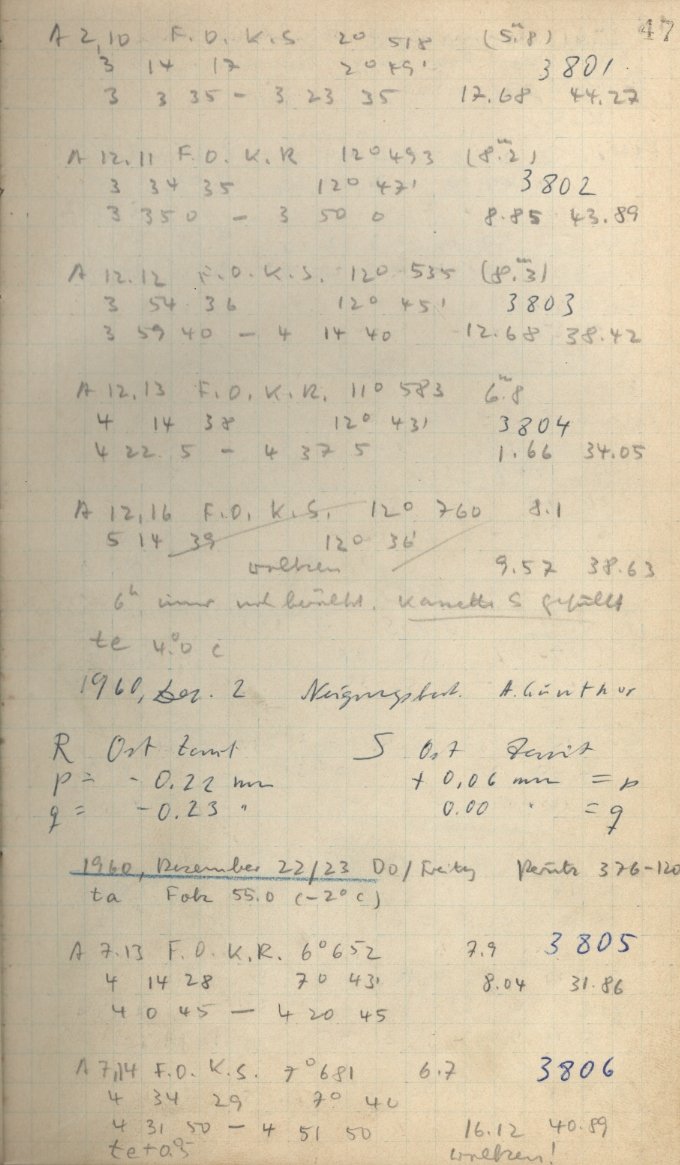 47
A 2,10 F.O. K.S 2° 518 (5.ᵐ8)
3 14 17 2° 49' 3801
3 3 35 – 3 23 35 17.68 44.27
A 12.11 F.O. K.R 12° 493 (8.ᵐ2)
3 34 35 12° 47' 3802
3 35 0 – 3 50 0 8.85 43.89
A 12.12 F.O. K.S. 12° 535 (8.ᵐ3)
3 54 36 12° 45' 3803
3 59 40 – 4 14 40 12.68 38.42
A 12.13 F.O. K.R. 11° 583 6.ᵐ8
4 14 38 12° 43' 3804
4 22. 5 – 4 37 5 1.66 34.05
A 12,16 F.O. K.S. 12° 760 8.1
5 14 39 12° 36'
wolken 9.57 38.63
6ʰ immer noch bewölkt. Kassette S gefüllt
te 4.°0 C
1960, Dez. 2 Neigungsbest. A. Günther
R Ost Zenit S Ost Zenit
p = - 0.22 mm + 0,06 mm = p
q = - 0.23 " 0.00 " = q
1960, Dezember 22/23 Do/Freitag Perutz 376-120
ta Fok 55.0 (-2° C)
A 7.13 F.O. K.R. 6° 652 7.9 3805
4 14 28 7° 43' 8.04 31.86
4 0 45 – 4 20 45
A 7,14 F.O. K.S. 7° 681 6.7 3806
4 34 29 7° 40
4 31 50 – 4 51 50 16.12 40.89
te + 0.5 wolken!